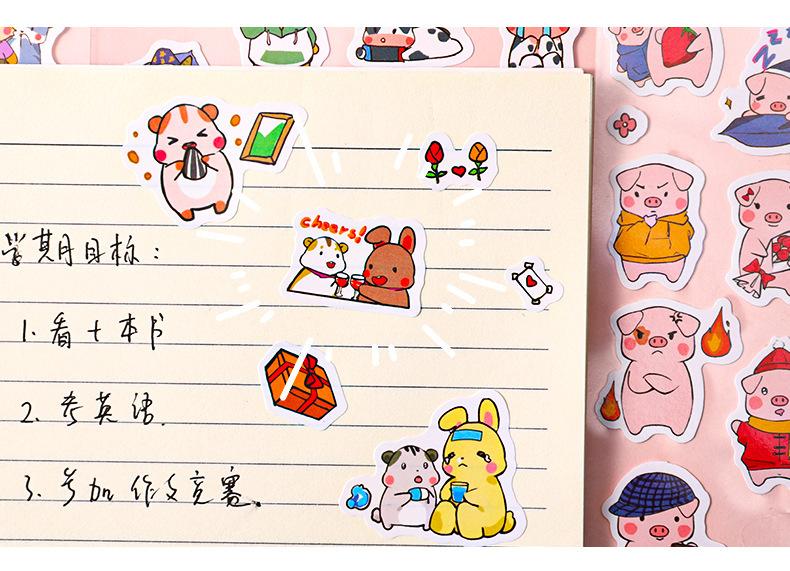 cheers!
学期目标：
1. 看十本书
2. 考英语.
3. 参加作文竞赛.
ZZZ